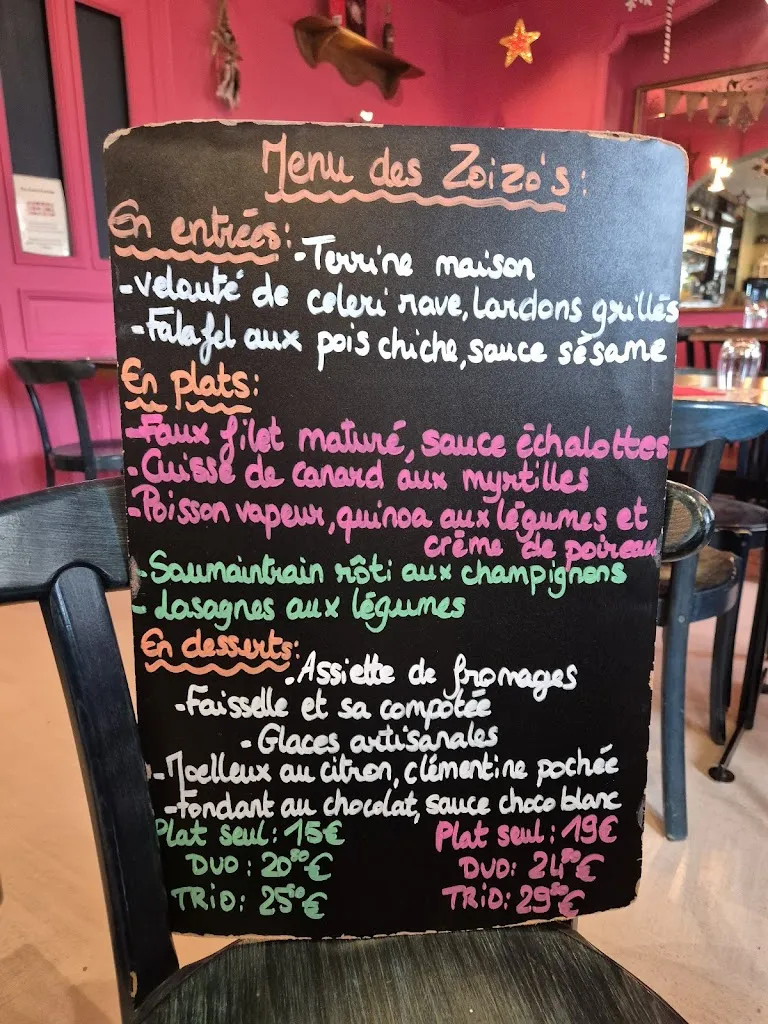 Menu des Zoizo's :
En entrées :
- Terrine maison
- Velouté de celeri rave, lardons grillés
- Falafel aux pois chiche, sauce sésame
En plats :
- Faux filet maturé, sauce échalottes
- Cuisse de canard aux myrtilles
- Poisson vapeur, quinoa aux légumes et
crème de poireau
- Soumaintrain rôti aux champignons
- Lasagnes aux légumes
En desserts :
- Assiette de fromages
- Faisselle et sa compotée
- Glaces artisanales
- Moelleux au citron, clémentine pochée
- Fondant au chocolat, sauce choco blanc
Plat seul : 15€ Plat seul : 19€
DUO : 20⁵⁰€ DUO : 24⁵⁰€
TRIO : 25⁵⁰€ TRIO : 29⁵⁰€